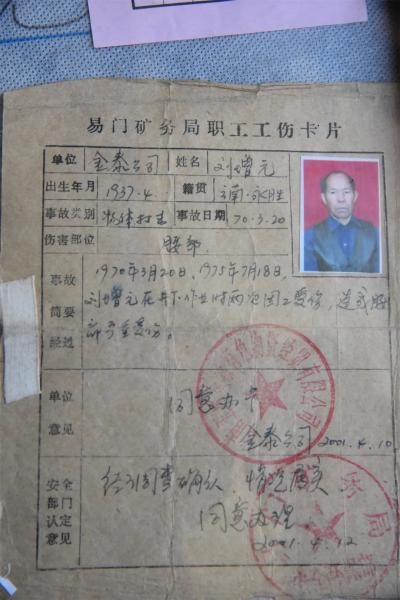 易门矿务局职工工伤卡片
单位 金泰公司 姓名 刘增元
出生年月 1937.4 籍贯 云南·永胜
事故类别 物体打击 事故日期 70.3.20
伤害部位 腰部
事故简要经过 1970年3月20日,1975年7月18日,
刘增元在井下作业时两次因工受伤,造成腰
部严重受伤。
单位意见 同意办卡
金泰公司 2001.4.10
安全部门认定意见 经调查确认,情况属实
同意办理
2001.4.12